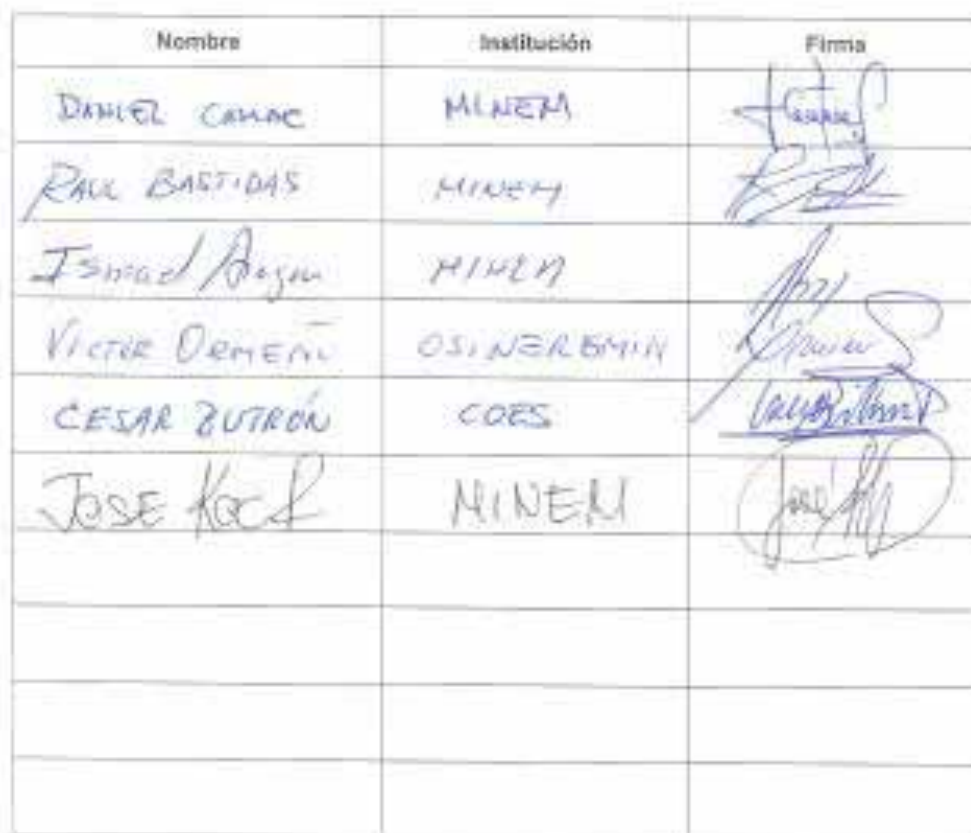 Nombre Institución Firma
DANIEL CAMAC MINEM
RAUL BASTIDAS MINEM
Ismael MINEM
VICTOR ORMEÑO OSINERGMIN
CESAR BUTRÓN COES
JOSE KOCH MINEM
José